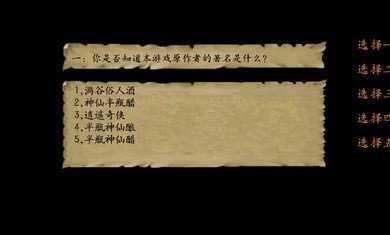 一：你是否知道本游戏原作者的著名是什么？
1,满谷俗人酒
2,神仙半瓶醋
3,逍遥奇侠
4,半瓶神仙酿
5,半瓶神仙醋
选择一
选择二
选择三
选择四
选择五